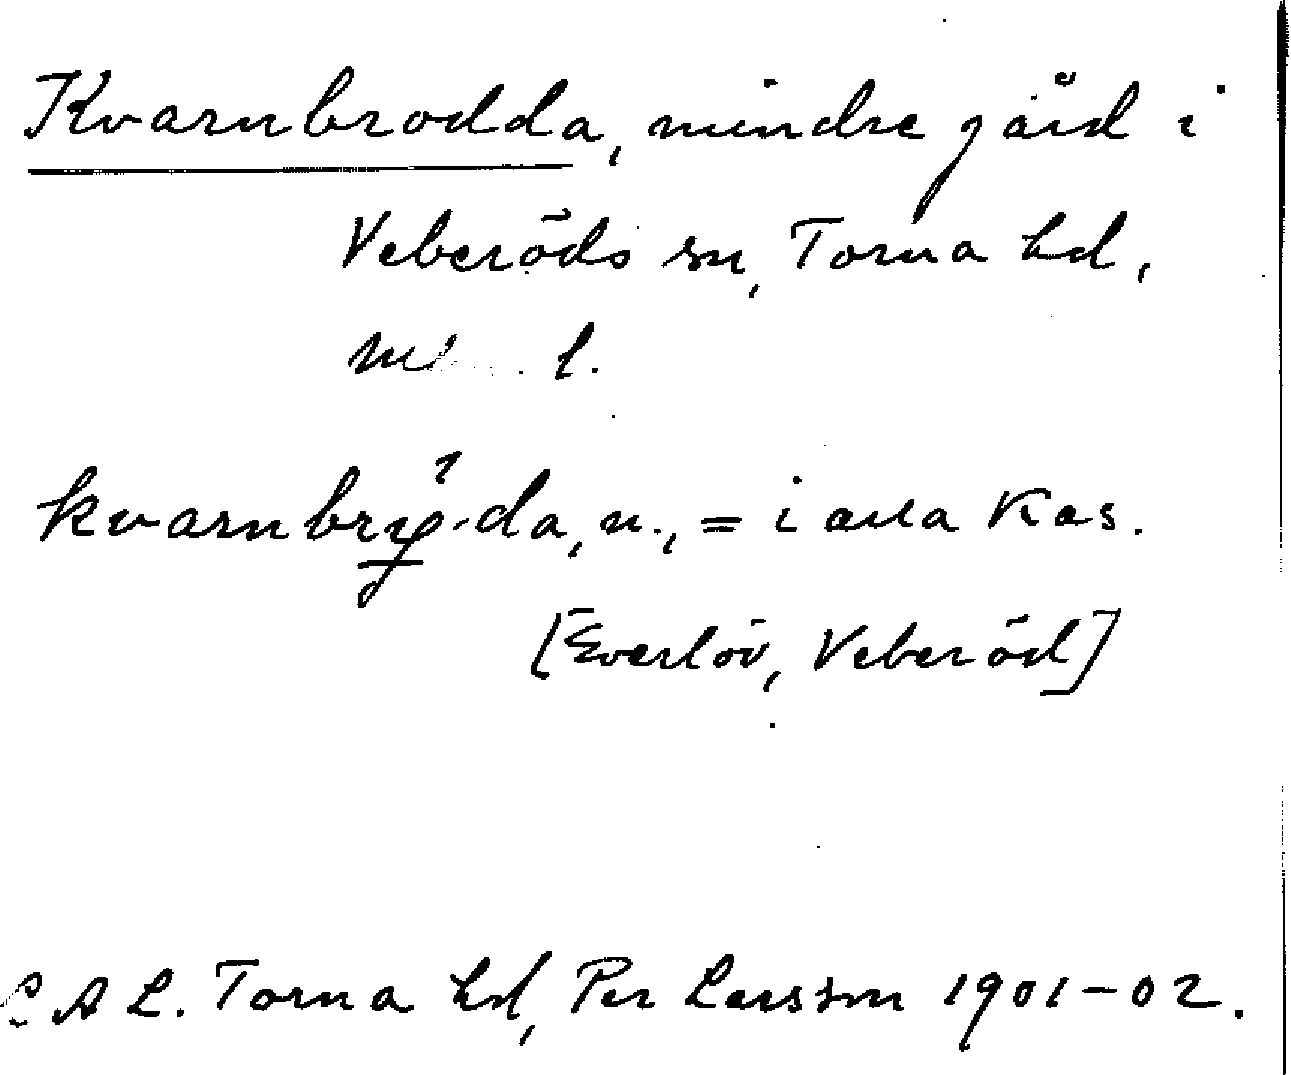 Kvarnbrodda, mindre gärd i
Veberöds sn, Torna hd,
l.
kvarnbrø̄́da, n., = i alla Kas.
[Everlöv, Veberöd]
L A L. Torna hd, Per Larsson 1901-02.